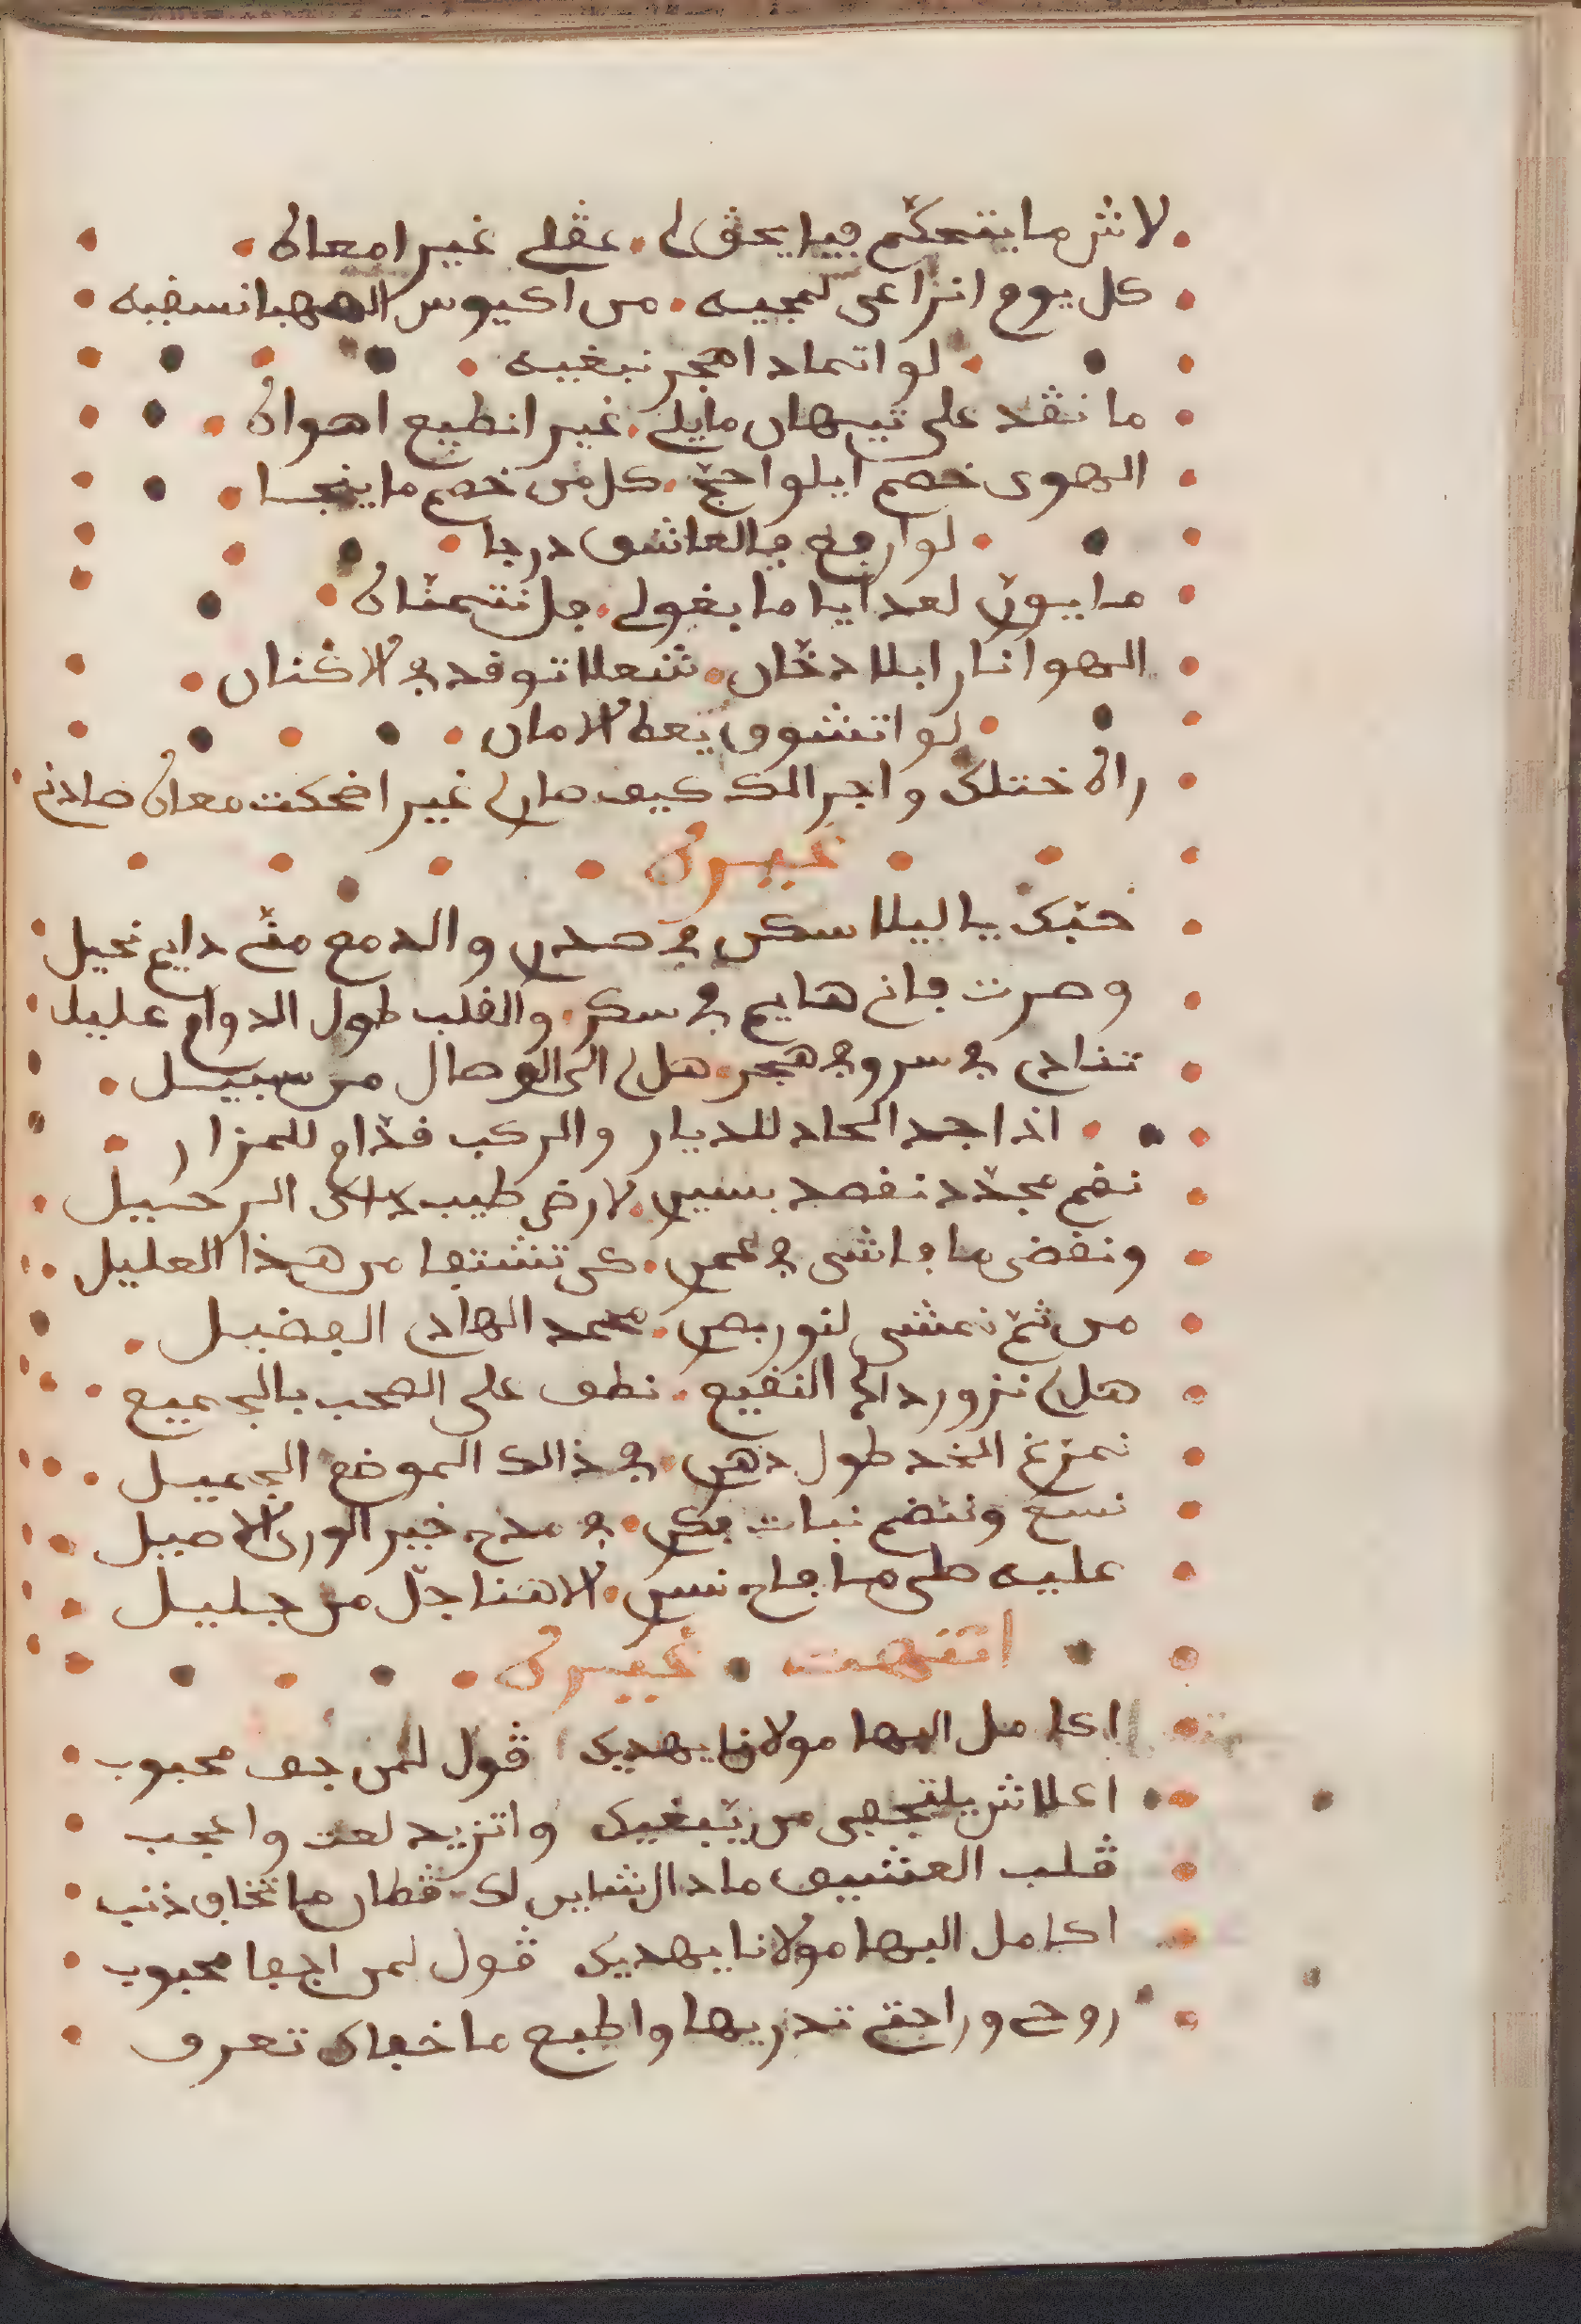 لاش ما يتحكم فيا يحڧ لي عڧلي غير امعاه
كل يوم انراعى لمجيه من اكيوس الصهبا نسقيه
لو اتماد اهجر نبغيه
ما نڧد على تيهان مايلي غير انطيع اهواه
الهوى خصم ايلو احج كل من خصم ما ينجا
لو ارفع فالعاشق درجا
ما يون لعدايا ما بغولي جل نتمناه
الهوا نار ابلا دخان شعلا توقد في الاكنان
لو اتشوف يعط الامان
راه ختلك واجرالك كيف صار غير اضحكت معاه صادني
غيره
حبك يا ليلا سكن في صدري والدمع مني دايم نحيل
وصرت فاني هايم في سكر والقلب طول الدوام عليل
تنادي في سر وفي هجر هل الى الوصال من سبيل
اذا جد الحاد للديار والركب قدام للمزار
نقم مجدد نقصد بسير لارض طيب الرحيل
ونقضي ما فاتني في عمري كي تشتفا من هذا العليل
من ثم نمشي لنور بصري محمد الهادي الفضيل
هل نزور ذاك النقيع نطف على الصحب بالجميع
نمرغ الخد طول دهري في ذالك الموضع الجميل
نسع وننضم نبات فكري في مدح خير الورى الاصيل
عليه صلى ما فاح نسر الاهنا جل من جليل
انتهت غيره
اكامل البها مولانا يهديك ڧول لمن جف محبوب
اعلاش يلتجى من يبغيك واتزيد لعت واعجب
ڧلب العشيق مادال شاير لك ڧطار ما تخاف ذنب
اكامل البها مولانا يهديك ڧول لمن اجفا محبوب
روحي وراحتي تدريها واطبع ما خفاك تعرف